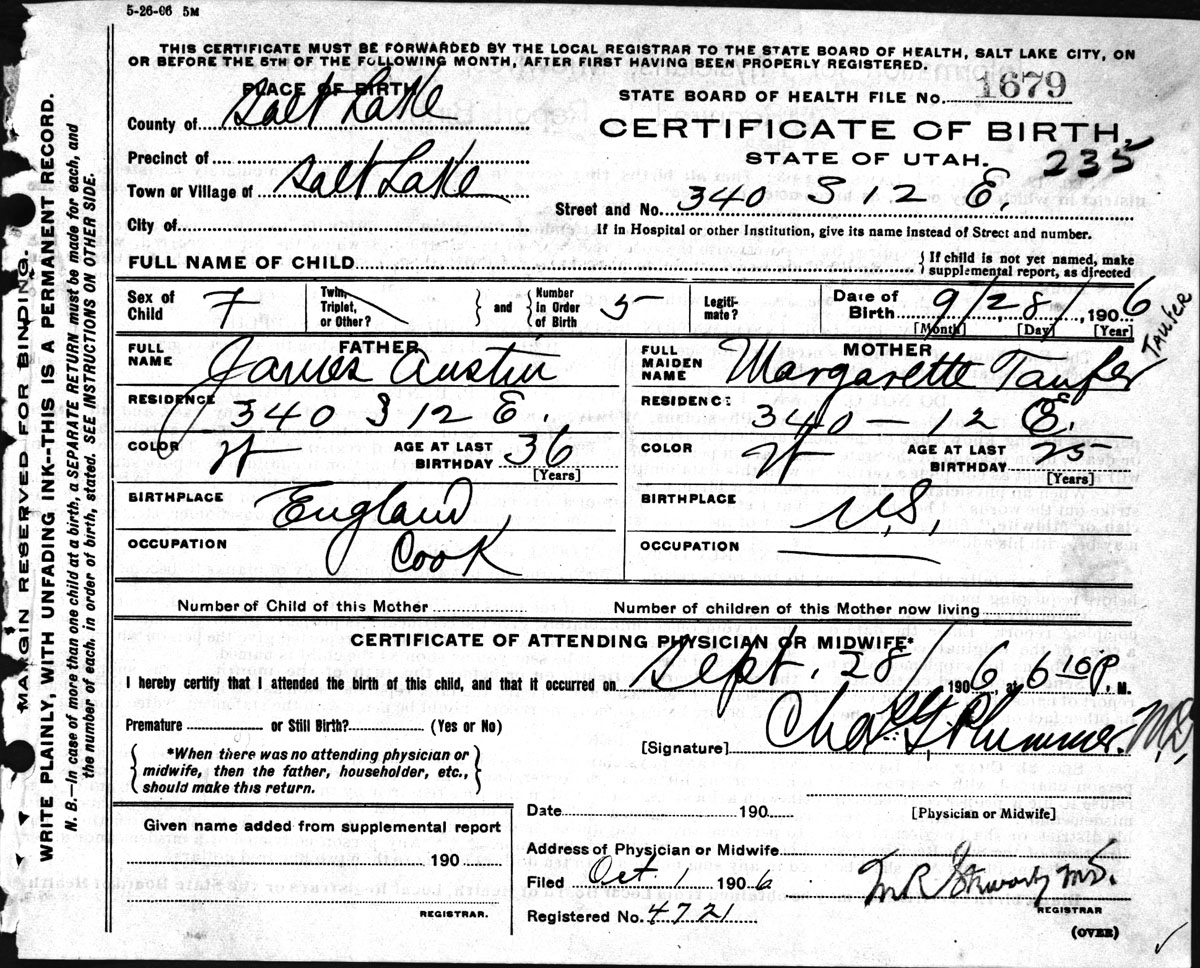 5-26-06 5M
THIS CERTIFICATE MUST BE FORWARDED BY THE LOCAL REGISTRAR TO THE STATE BOARD OF HEALTH, SALT LAKE CITY, ON
OR BEFORE THE 5TH OF THE FOLLOWING MONTH, AFTER FIRST HAVING BEEN PROPERLY REGISTERED.
PLACE OF BIRTH
STATE BOARD OF HEALTH FILE No. 1679
County of Salt Lake
CERTIFICATE OF BIRTH.
Precinct of
STATE OF UTAH. 235
Town or Village of Salt Lake
Street and No. 340 S 12 E.
City of
If in Hospital or other Institution, give its name instead of Street and number.
FULL NAME OF CHILD
{ If child is not yet named, make
supplemental report, as directed
Sex of Child F
Twin, Triplet, or Other? } and { Number in Order of Birth 5
Legiti-mate?
Date of Birth 9/28/1906
[Month] [Day] [Year]
Taufer
FATHER
FULL NAME James Austin
MOTHER
FULL MAIDEN NAME Margarette Taufer
RESIDENCE 340 S 12 E.
RESIDENCE 340 - 12 E.
COLOR W AGE AT LAST BIRTHDAY 36 [Years]
COLOR W AGE AT LAST BIRTHDAY 25 [Years]
BIRTHPLACE England
BIRTHPLACE U.S.
OCCUPATION Cook
OCCUPATION
Number of Child of this Mother
Number of children of this Mother now living
CERTIFICATE OF ATTENDING PHYSICIAN OR MIDWIFE*
I hereby certify that I attended the birth of this child, and that it occurred on Sept. 28 1906, at 6 10 P. M.
Premature or Still Birth? (Yes or No)
[Signature] Chas. G. Plummer. M.D.
{ *When there was no attending physician or
midwife, then the father, householder, etc.,
should make this return. }
[Physician or Midwife]
Date 190
Given name added from supplemental report
190
REGISTRAR.
Address of Physician or Midwife
Filed Oct. 1 1906
M.D.
REGISTRAR
Registered No. 4721
(OVER)
MARGIN RESERVED FOR BINDING.
WRITE PLAINLY, WITH UNFADING INK--THIS IS A PERMANENT RECORD.
N. B.—In case of more than one child at a birth, a SEPARATE RETURN must be made for each, and
the number of each, in order of birth, stated. SEE INSTRUCTIONS ON OTHER SIDE.